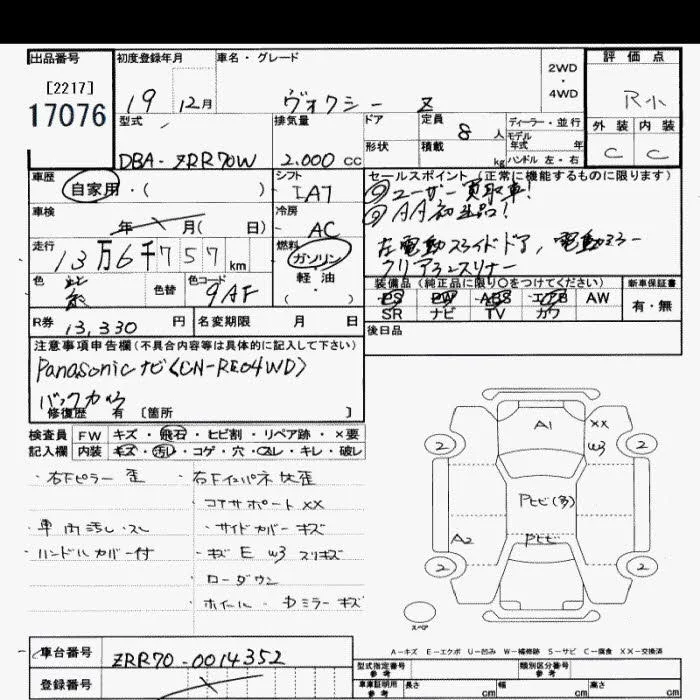 出品番号
[2217]
17076
初度登録年月
19 12月
車名・グレード
ヴォクシー Z
2WD
・
4WD
評価点
R小
外装 内装
C C
型式
DBA-ZRR70W
排気量
2.000 cc
ドア
形状
定員 8 人
積載 kg
ディーラー・並行
モデル年式 年
ハンドル 左・右
車歴
自家用・( )
シフト
IAT
車検
年 月( 日)
冷房
AC
走行
13万6千757km
燃料
ガソリン
軽油
( ・ )
色
色替
色コード
9AF
R券 13,330 円
名変期限 月 日
セールスポイント(正常に機能するものに限ります)
ユーザー買取車!
AA初出品!
左電動スライドドア, 電動ミラー
クリアランスソナー
装備品(純正品に限り○をつけてください)
PS PW ABS エアB AW
SR ナビ TV カワ
新車保証書
有・無
後日品
注意事項申告欄(不具合内容等は具体的に記入して下さい)
Panasonicナビ(CN-RE04WD)
バックカメラ
修復歴 有 〔箇所 〕
検査員記入欄
FW キズ・飛石・ヒビ割・リペア跡・×要
内装 キズ・汚レ・コゲ・穴・スレ・キレ・破レ
・右Fピラー 歪
・右Fインパネ 歪
コアサポート XX
・車内汚レ・スレ
・サイドカバー キズ
・ハンドルカバー付
・キズ E W3 スリキズ
ローダウン
ホイール・Dミラー キズ
A1
XX
W3
2
2
Pヒビ(多)
A2
Pヒビ
2
2
スペア
A-キズ E-エクボ U-凹み W-補修跡 S-サビ C-腐食 XX-交換済
車台番号
ZRR70-0014352
登録番号
型式指定番号 参考
類別区分番号 参考
車庫証明用 参考
長さ cm 幅 cm 高さ cm